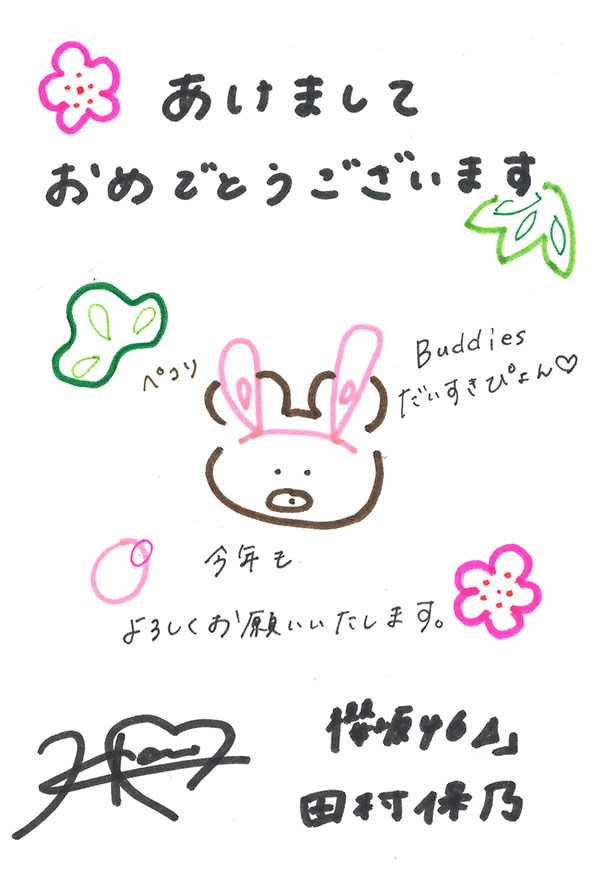 あけまして
おめでとうございます
Buddies
だいすきぴょん♡
ペコリ
今年も
よろしくお願いいたします。
櫻坂46
田村保乃